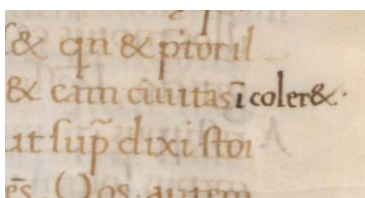 & qñ & p̃toril
& cam ciuitas ī coler&·
ut sup̃ dixi stoi
ẽs. Vos autem